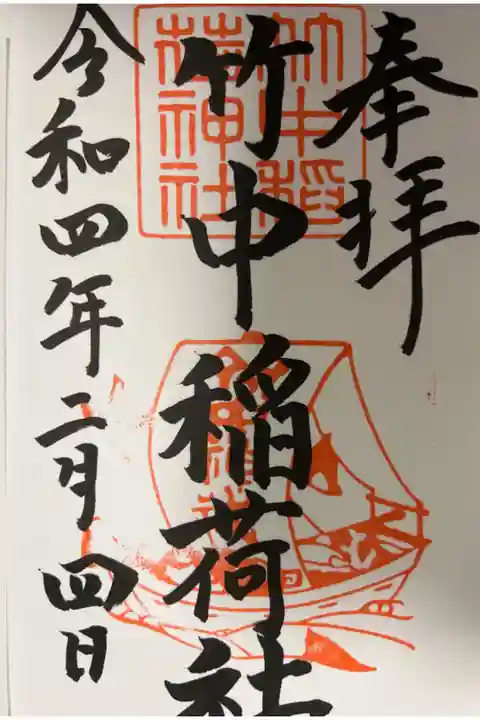 奉拝
竹中稲荷社
竹中稲
荷神社
令和四年二月四日